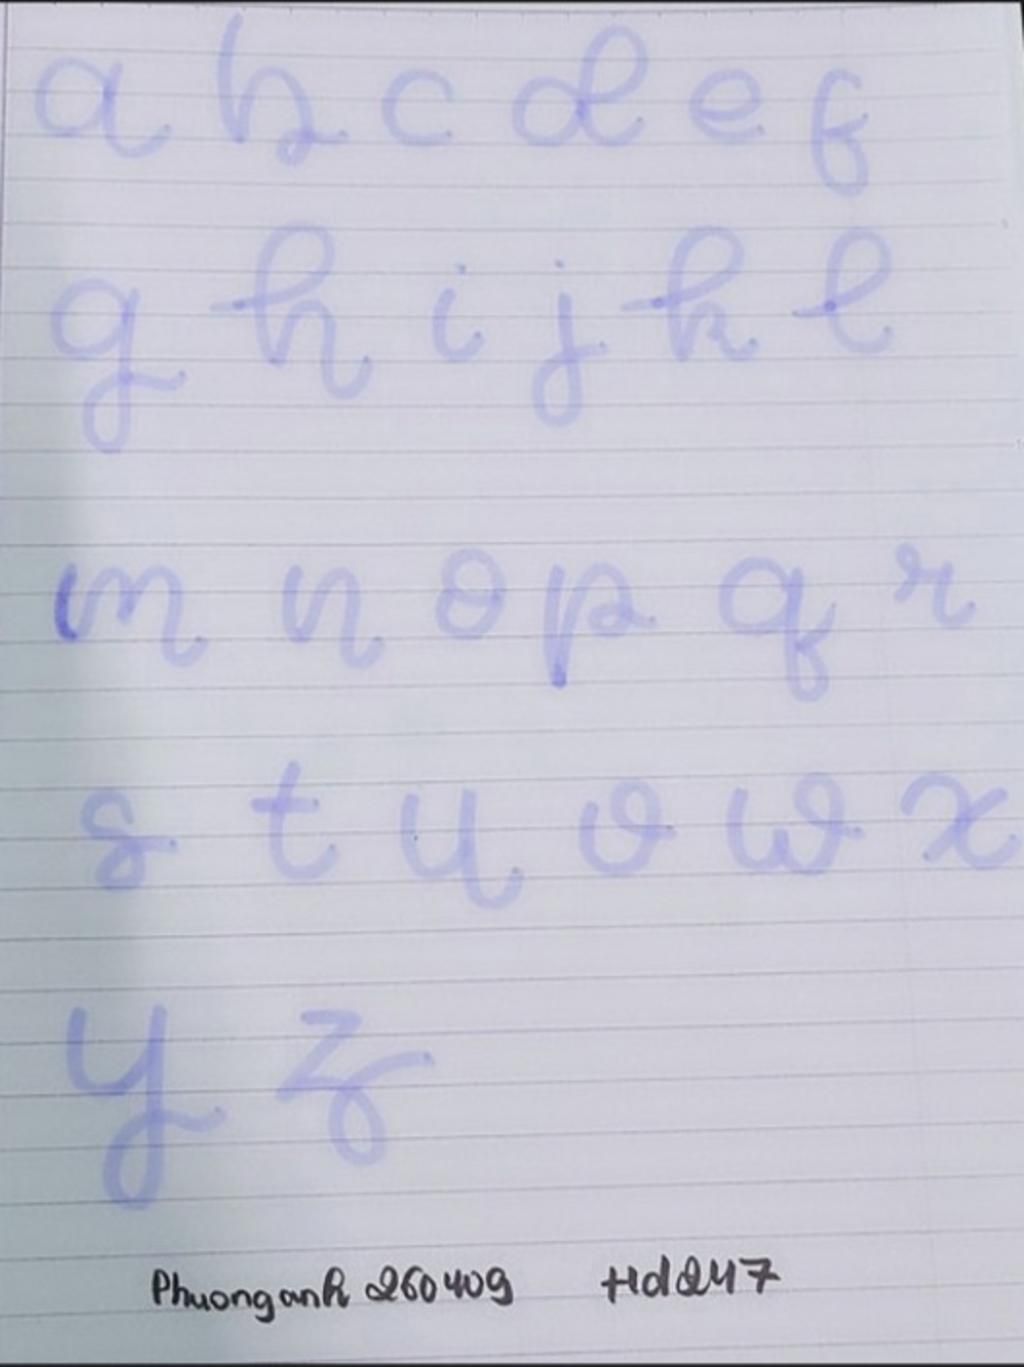 a b c d e f
g h i j k l
m n o p q r
s t u v w x
y z
Phuonganh 260409 Hd247